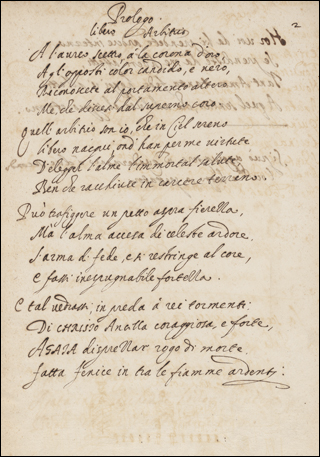 Prologo.
libero Arbitrio
2
A l'aureo scettro, a la corona d'oro,
A gl'opposti color candido, e nero,
Riconoscete al portamento altero
Me, che discesi dal superno coro
Quell'arbitrio son io, che in Ciel sereno
libero nacqui, ond'han per me virtute
D'elegger l'alme l'immortal salute
Ben che racchiuse in carcere terreno.
Può trafigere un petto aspra fierella,
Mà l'alma accesa di celeste ardore,
S'arma di fede, e si restringe al core,
E fassi inespugnabile fortella.
E tal vedrassi, in preda à rei tormenti,
Di CHRISTO Ancella coraggiosa, e forte,
AGATA disprezzar rogo di morte
fatta fenice in tra le fiamme ardenti: